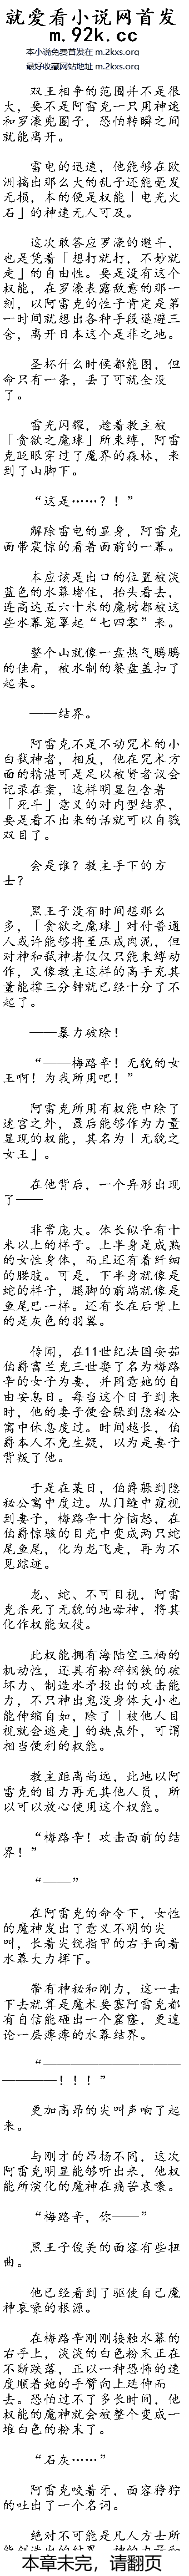 就爱看小说网首发
m.92k.cc
本小说免费首发在 m.2kxs.org
最好收藏网站地址 m.2kxs.org
双王相争的范围并不是很
大，要不是阿雷克一只用神速
和罗濠兜圈子，恐怕转瞬之间
就能离开。
雷电的迅速，他能够在欧
洲搞出那么大的乱子还能毫发
无损，本的便是权能「电光火
石」的神速无人可及。
这次敢答应罗濠的邀斗，
也是凭着「想打就打，不妙就
走」的自由性。要是没有这个
权能，在罗濠表露敌意的那一
刻，以阿雷克的性子肯定是第
一时间就想出各种手段退避三
舍，离开日本这个是非之地。
圣杯什么时候都能图，但
命只有一条，丢了可就全没
了。
雷光闪耀，趁着教主被
「贪欲之魔球」所束缚，阿雷
克眨眼穿过了魔界的森林，来
到了山脚下。
“这是……？！”
解除雷电的显身，阿雷克
面带震惊的看着面前的一幕。
本应该是出口的位置被淡
蓝色的水幕堵住，抬头看去，
连高达五六十米的魔树都被这
些水幕笼罩起“七四零”来。
整个山就像一盘热气腾腾
的佳肴，被水制的餐盘盖扣了
起来。
——结界。
阿雷克不是不动咒术的小
白弑神者，相反，他在咒术方
面的精湛可是足以被贤者议会
记录在案，这样明显包含着
「死斗」意义的对内型结界，
要是看不出来的话就可以自戳
双目了。
会是谁？教主手下的方
士？
黑王子没有时间想那么
多，「贪欲之魔球」对付普通
人或许能够将至压成肉泥，但
对神和弑神者仅仅只能束缚动
作，又像教主这样的高手充其
量能撑三分钟就已经十分了不
起了。
——暴力破除！
“——梅路辛！无貌的女
王啊！为我所用吧！”
阿雷克所用有权能中除了
迷宫之外，最后能够作为力量
显现的权能，其名为「无貌之
女王」。
在他背后，一个异形出现
了——
非常庞大。体长似乎有十
米以上的样子。上半身是成熟
的女性身体，而且还有着纤细
的腰肢。可是，下半身就像是
蛇的样子，腿脚的前端就像是
鱼尾巴一样。还有长在后背上
的是灰色的羽翼。
传闻，在11世纪法国安茹
伯爵富兰克三世娶了名为梅路
辛的女子为妻，并同意她的自
由安息日。每当这个日子到来
时，他的妻子便会躲到隐秘公
寓中休息度过。时间越长，伯
爵本人不免生疑，以为是妻子
背叛了他。
于是在某日，伯爵躲到隐
秘公寓中度过。从门缝中窥视
到妻子，梅路辛十分恼怒，在
伯爵惊骇的目光中变成两只蛇
尾鱼尾，化为龙飞走，再为不
见踪迹。
龙、蛇、不可目视，阿雷
克杀死了无貌的地母神，将其
化作权能奴役。
此权能拥有海陆空三栖的
机动性，还具有粉碎钢铁的破
坏力、制造水矛投出的攻击能
力，不只神出鬼没身体大小也
能伸缩自如，除了「被他人目
视就会逃走」的缺点外，可谓
相当便利的权能。
教主距离尚远，此地以阿
雷克的目力再无其他人员，所
以可以放心使用这个权能。
“梅路辛！攻击面前的结
界！”
“——”
在阿雷克的命令下，女性
的魔神发出了意义不明的尖
叫，长着尖锐指甲的右手向着
水幕大力挥下。
带有神秘和刚力，这一击
下去就算是魔术要塞阿雷克都
有自信能砸出一个窟窿，更遑
论一层薄薄的水幕结界。
“————————————
————！！！”
更加高昂的尖叫声响了起
来。
与刚才的昂扬不同，这次
阿雷克明显能够听出来，他权
能所演化的魔神在痛苦哀嚎。
“梅路辛，你——”
黑王子俊美的面容有些扭
曲。
他已经看到了驱使自己魔
神哀嚎的根源。
在梅路辛刚刚接触水幕的
右手上，淡淡的白色粉末正在
不断跌落，正以一种恐怖的速
度顺着她的手臂向上延伸而
去。恐怕过不了多长时间，他
权能的魔神就会被整个变成一
堆白色的粉末了。
“石灰……”
阿雷克咬着牙，面容狰狞
的吐出了一个名词。
绝对不可能是凡人方士所
本章未完，请翻页